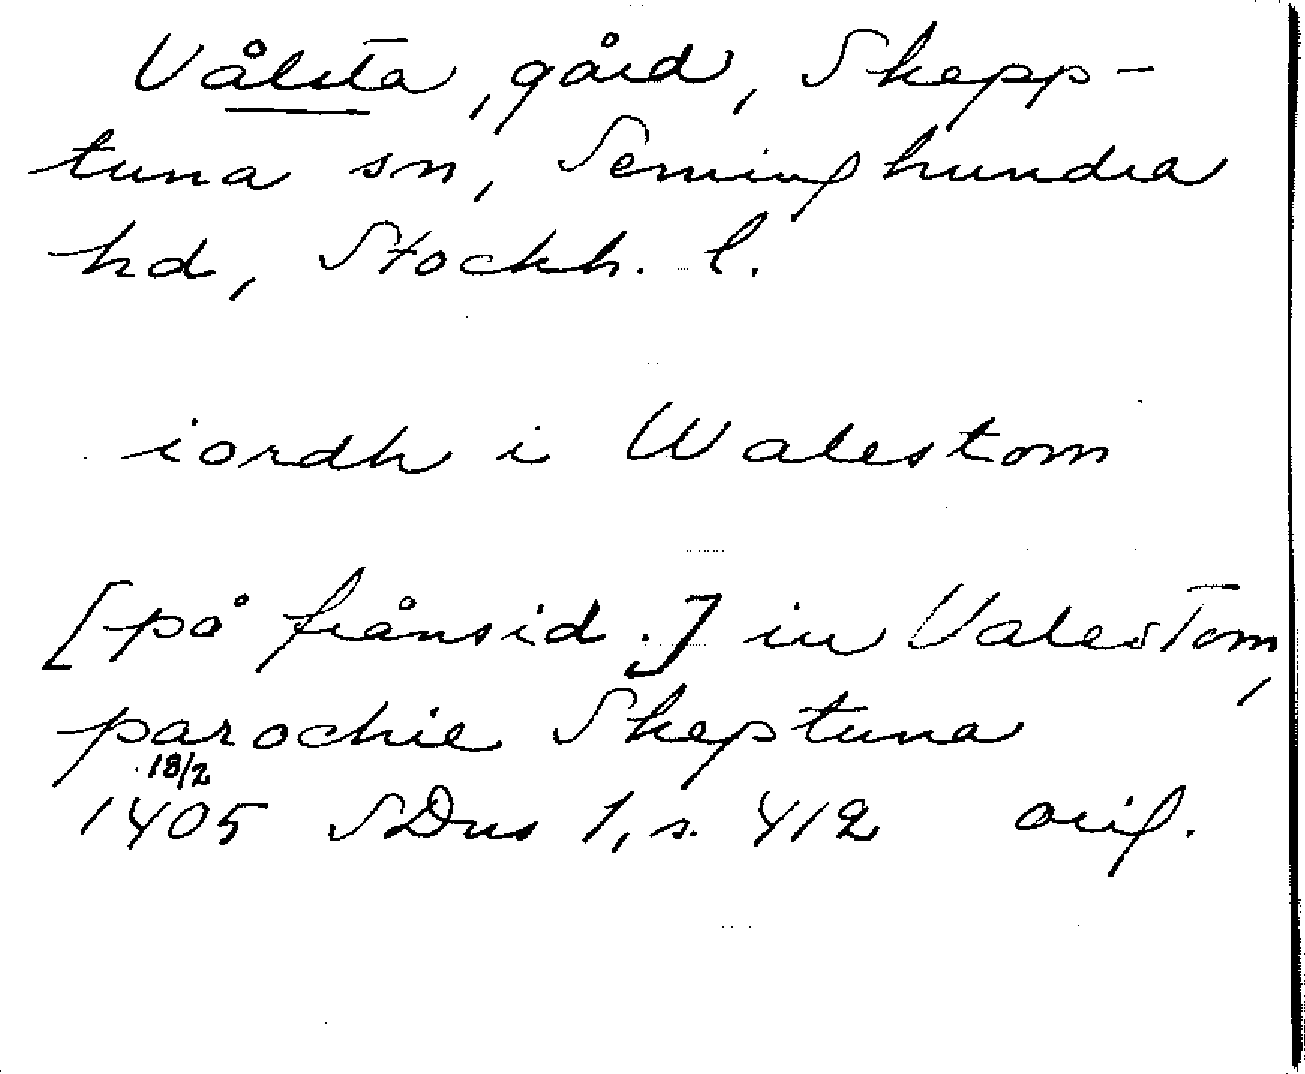 Vålsta, gård, Skepp-
tuna sn, Seminghundra
hd, Stockh. l.
iordh i Walestom
[på frånsid.] in Valestom,
parochie Skeptuna
18/2
1405 SDns 1, s. 412 orig.